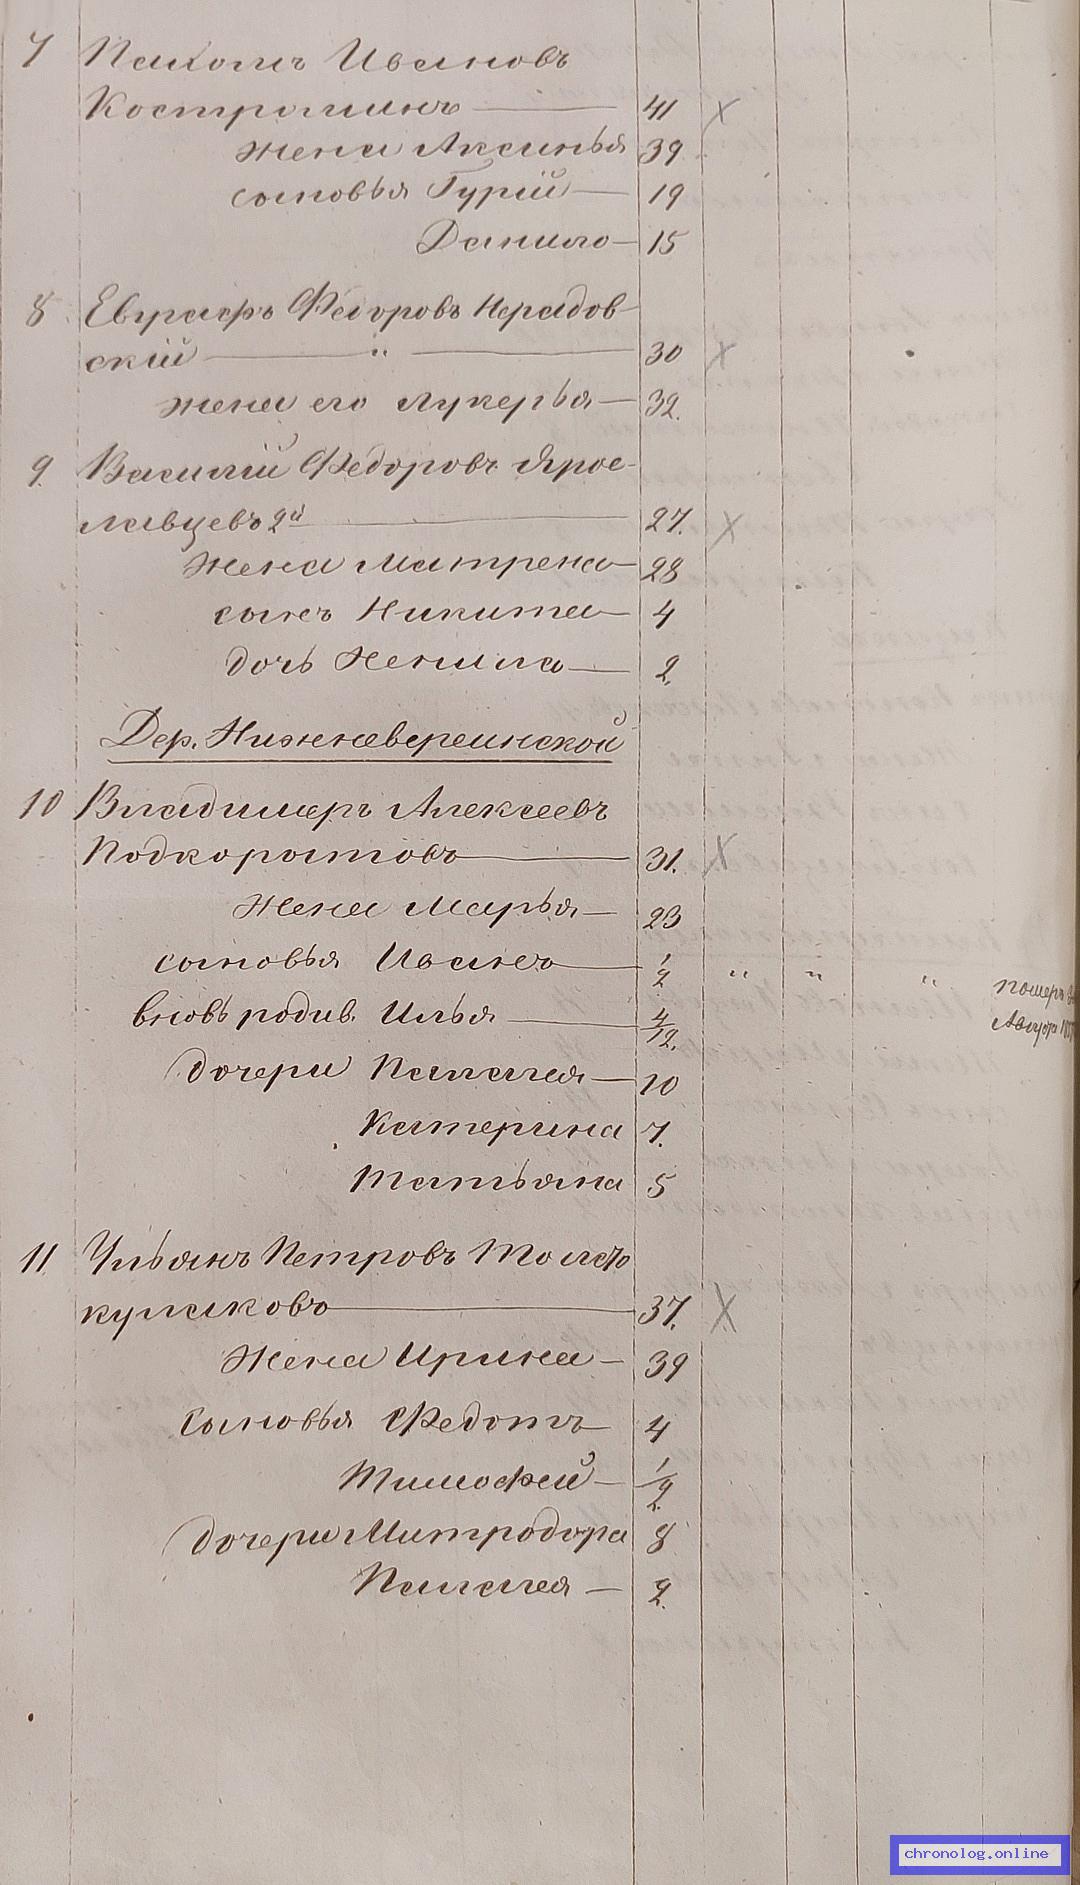 7 Пахомъ Ивановъ
Костроминъ 41 X
жена Аксинья 39
сыновья Гурій 19
Данило 15
8 Евграфъ Федоровъ Нерадов-
скій " 30 X
жена его Лукерья 32.
9. Василій Федоровъ Ярос-
лавцевъ 2й 27. X
жена Матрена 28
сынъ Никита 4
дочь Ненила 2.
Дер. Нижне
10 Владимиръ Алексеевъ
Подкорытовъ 31. X
жена Марья 23
сыновья Иванъ 1/2 " " " померъ въ
вновь родив. Илья 4/12. Августѣ
дочери Палагея 10
Катерина 7.
Татьяна 5
11 Ульянъ Петровъ Толсто
кулаковъ 37. X
Жена Ирина 39
Сыновья Федотъ 4
Тимофей 1/2.
дочери Митродора 8
Палагея 2.
chronolog.online